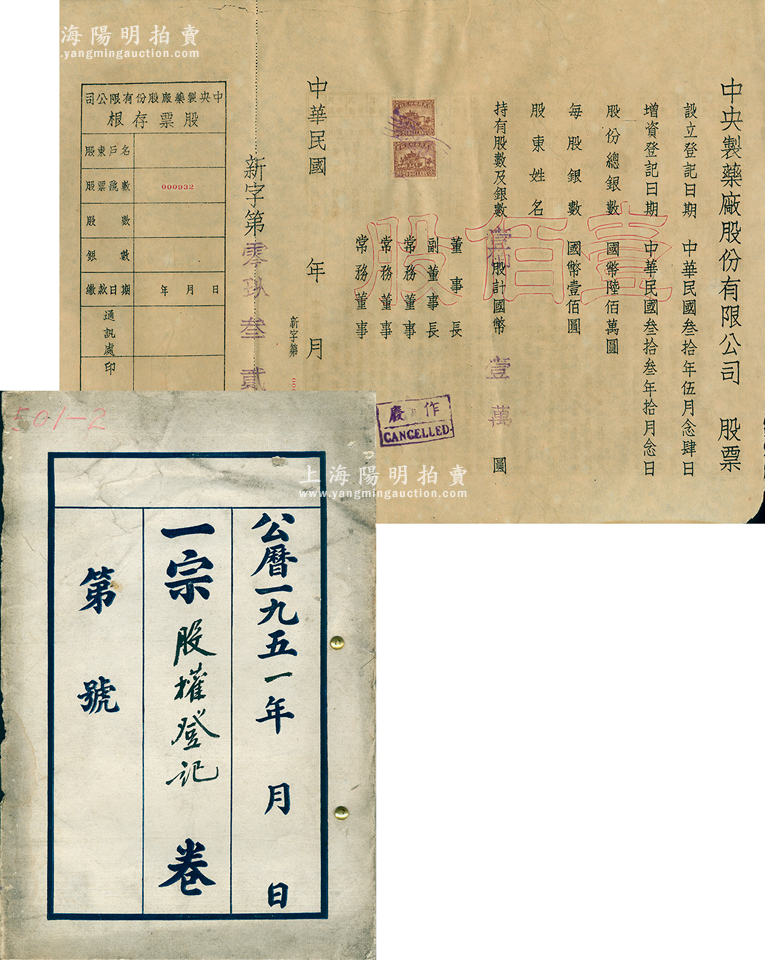 上海陽明拍賣
www.yangmingauction.com
中央製藥廠股份有限公司 股票
設立登記日期 中華民國叁拾年伍月念肆日
增資登記日期 中華民國叁拾叁年拾月念日
股份總銀數 國幣陸佰萬圓
每股銀數 國幣壹佰圓
股東姓名
持有股數及銀數 壹佰股計國幣壹萬圓
壹佰股
董事長
副董事長
常務董事
常務董事
常務董事
作廢
CANCELLED
中華民國 年 月
新字第
新字第零玖叁貳
中央製藥廠股份有限公司
股票存根
股東戶名
股票號數 000932
股數
銀數
繳款日期 年 月 日
通訊處
印
501-2
公曆一九五一年 月 日
一宗 股權登記 卷
第 號
上海陽明拍賣
www.yangmingauction.com